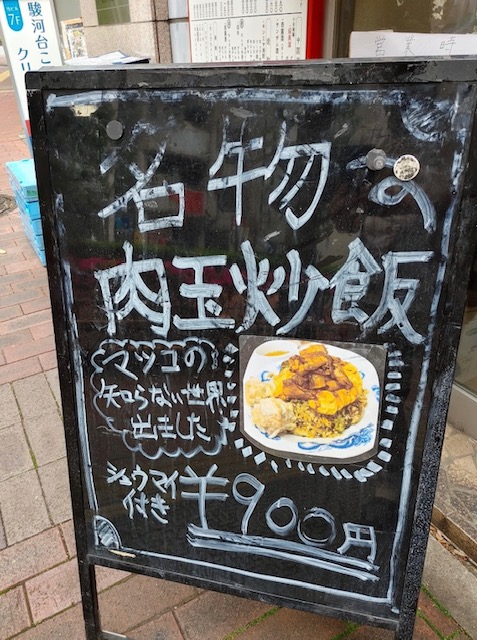 7F
駿河台こ
ク
営業時
名物の
肉玉炒飯
マツコの
知らない世界
出ました
シュウマイ
付き
¥900円